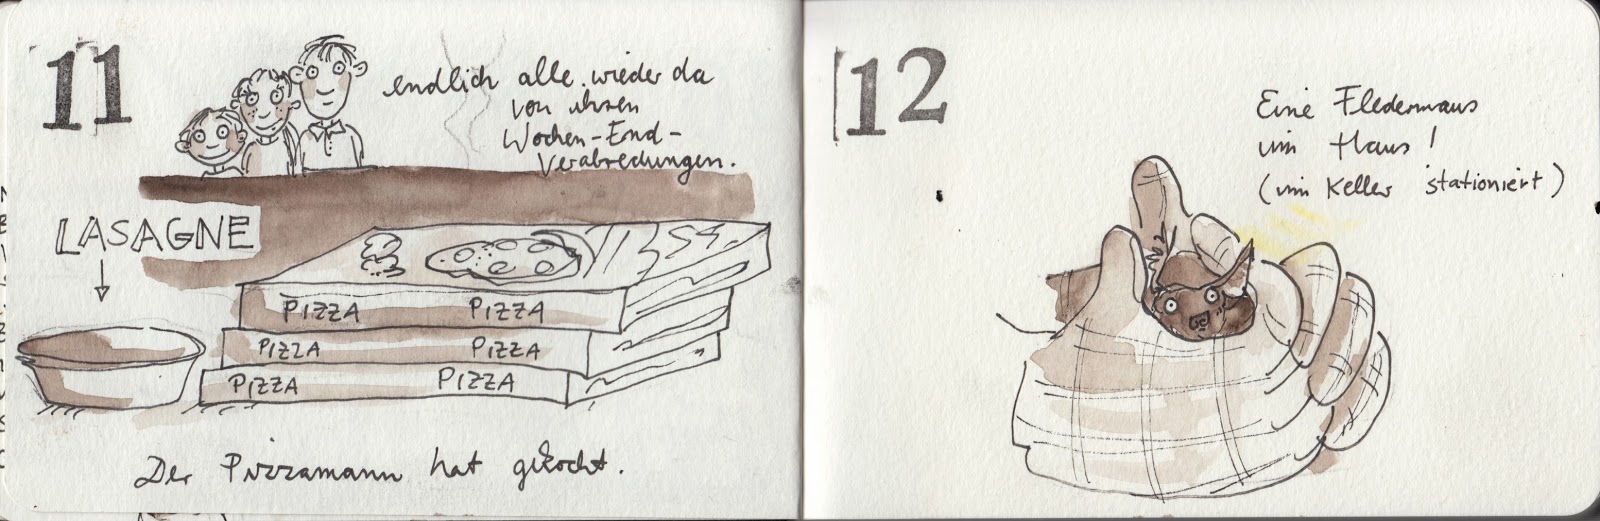 11
endlich alle wieder da
von ihren
Wochen-End-
Verabredungen.
LASAGNE
PIZZA PIZZA
PIZZA PIZZA
PIZZA PIZZA
Der Pizzamann hat gekocht.
12
Eine Fledermaus
im Haus!
(im Keller stationiert)